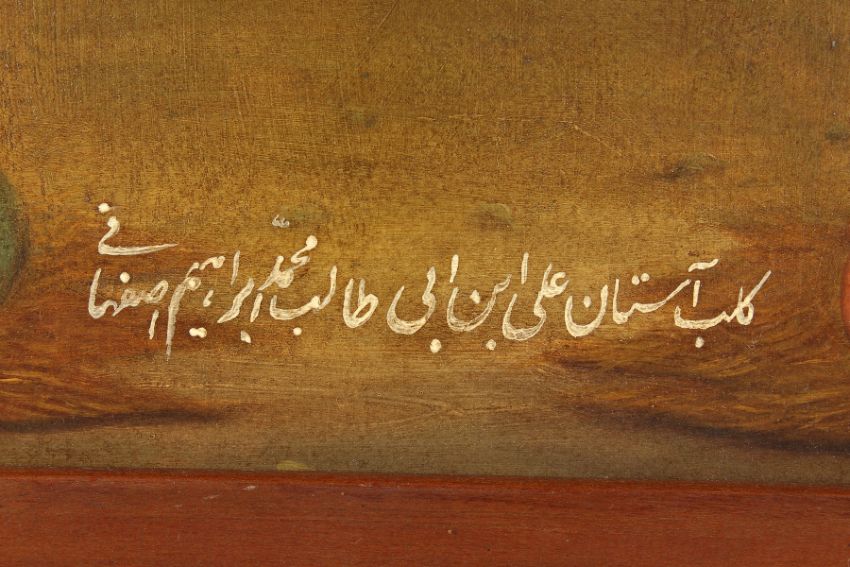 کلب آستان علی ابن ابی طالب محمّد ابراهیم اصفهانی